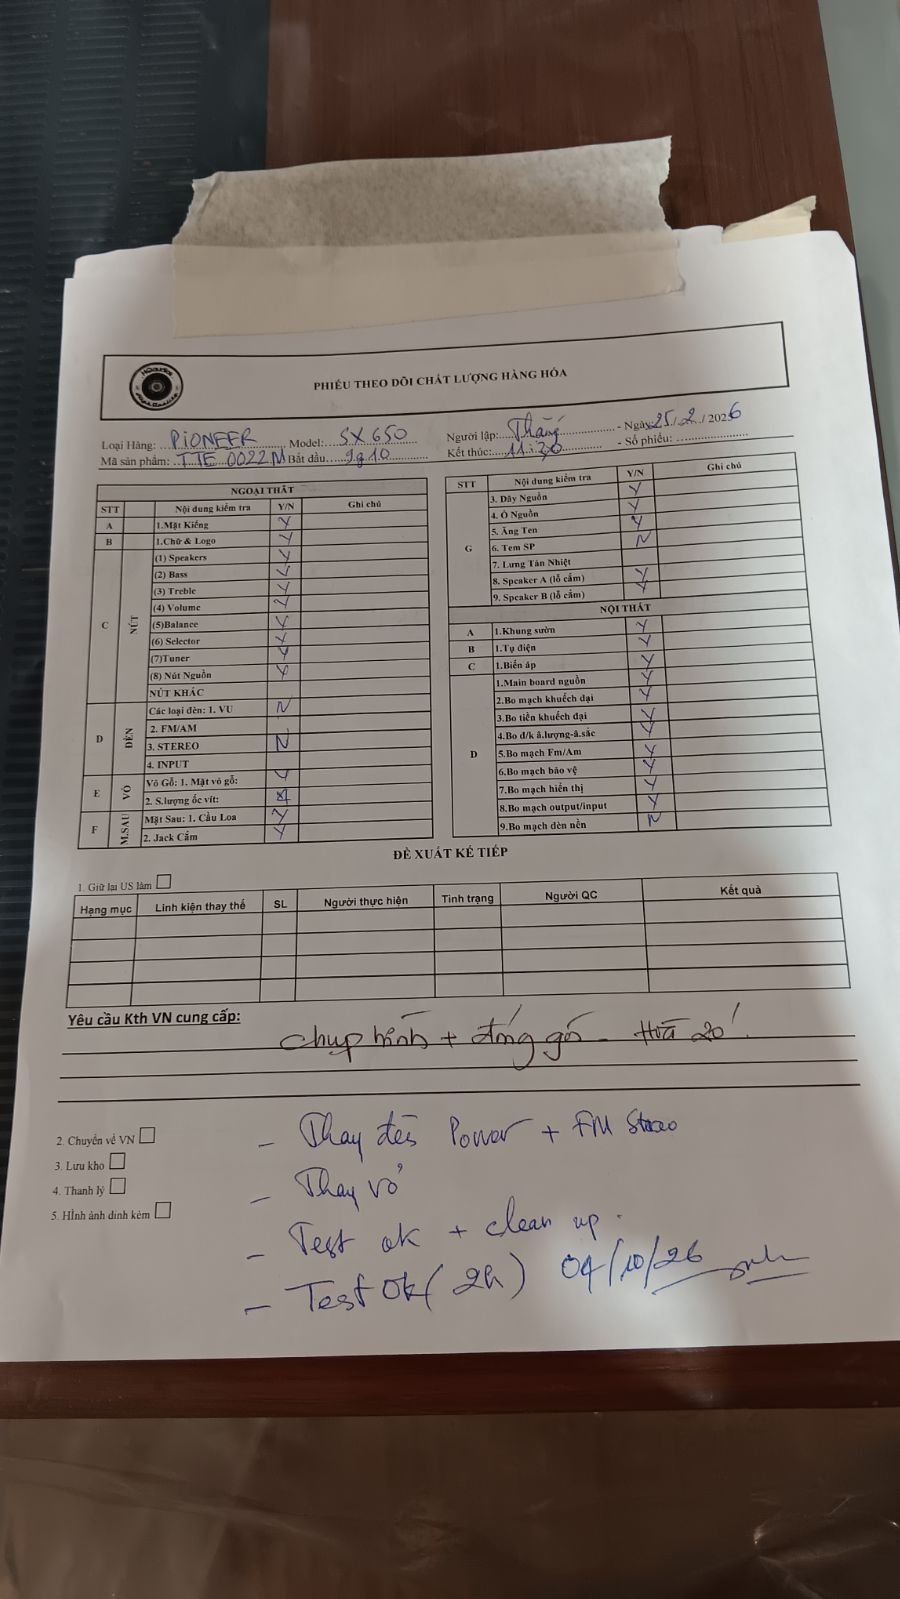 PHIẾU THEO DÕI CHẤT LƯỢNG HÀNG HÓA
Loại Hàng: PIONEER Model: SX 650 Người lập: Thắng - Ngày 25/2/2026
Mã sản phẩm: TTE 0022M Bắt đầu 9g10 Kết thúc: 11:30 - Số phiếu:
NGOẠI THẤT
STT Nội dung kiểm tra Y/N Ghi chú
A 1.Mặt Kiếng Y
B 1.Chữ & Logo Y
C NÚT
(1) Speakers Y
(2) Bass Y
(3) Treble Y
(4) Volume Y
(5)Balance Y
(6) Selector Y
(7)Tuner Y
(8) Nút Nguồn Y
NÚT KHÁC
D ĐÈN
Các loại đèn: 1. VU N
2. FM/AM
3. STEREO N
4. INPUT
E VỎ
Vỏ Gỗ: 1. Mặt vỏ gỗ: Y
2. S.lượng ốc vít:
F M.SAU
Mặt Sau: 1. Cầu Loa Y
2. Jack Cắm Y
STT Nội dung kiểm tra Y/N Ghi chú
G
3. Dây Nguồn Y
4. Ổ Nguồn Y
5. Ăng Ten Y
6. Tem SP N
7. Lưng Tản Nhiệt
8. Speaker A (lỗ cắm) Y
9. Speaker B (lỗ cắm) Y
NỘI THẤT
A 1.Khung sườn Y
B 1.Tụ điện Y
C 1.Biến áp Y
D
1.Main board nguồn Y
2.Bo mạch khuếch đại Y
3.Bo tiền khuếch đại Y
4.Bo đ/k â.lượng-â.sắc Y
5.Bo mạch Fm/Am Y
6.Bo mạch bảo vệ Y
7.Bo mạch hiển thị Y
8.Bo mạch output/input Y
9.Bo mạch đèn nền N
ĐỀ XUẤT KẾ TIẾP
1. Giữ lại US làm
Hạng mục Linh kiện thay thế SL Người thực hiện Tình trạng Người QC Kết quả
Yêu cầu Kth VN cung cấp:
chụp hình + đóng gói - Hoà 20'
2. Chuyển về VN
3. Lưu kho
4. Thanh lý
5. Hình ảnh đính kèm
- Thay đèn Power + FM Stereo
- Thay vỏ
- Test ok + clean up.
- Test Ok (2h) 04/10/26